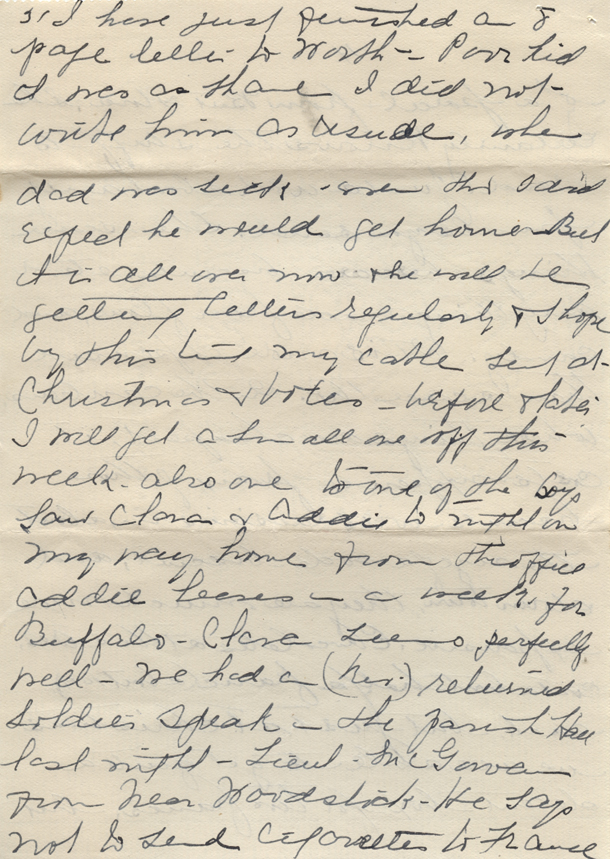 3/ I have just finished an 8
page letter to Worth - Poor kid
it was a shame I did not
write him as usual, when
dad was sick - even tho I did
expect he would get home But
it is all over now & he will be
getting letters regularly & I hope
by this time my cable sent at
Christmas & Notes - before & later
I will get a small one off this
week - also one to one of the boys
Saw Clara & Addie to night on
my way home from the office
Addie leaves in a week for
Buffalo - Clara seems perfectly
well - We had a (Nev.) returned
soldier speak in the parish Hall
last night - Lieut. McGowan
from near Woodstock - He says
not to send cigarettes to France